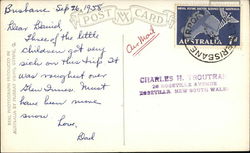 Brisbane Sep 26, 1958
POST CARD
Dear Daniel,
Three of the little
children got very
sick on this trip. It
was roughest over
Glen Innes. Must
have been more
snow.
Love,
Dad
Air Mail
AUSTRALIA 7d
BRISBANE
CHARLES H. TROUTMAN
ROSEVILLE AVENUE
ROSEVILLE, NEW SOUTH WALES
REAL PHOTOGRAPH PRODUCED IN